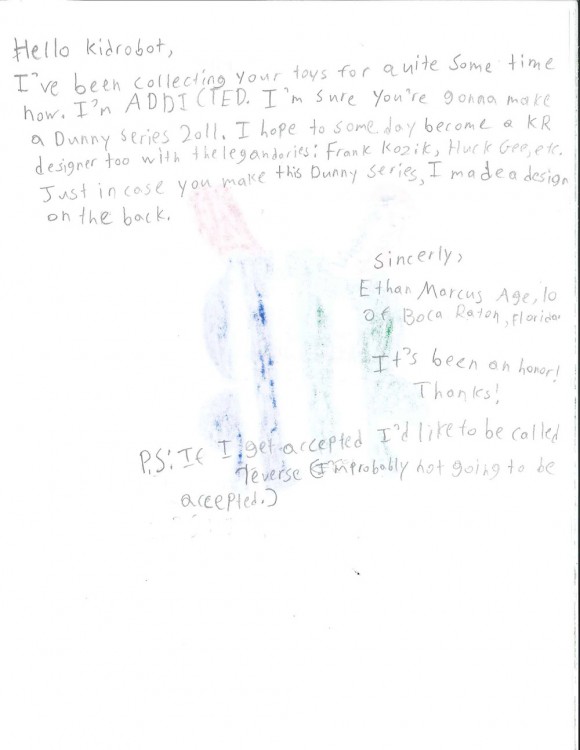 Hello kidrobot,
I've been collecting your toys for quite some time
now. I'm ADDICTED. I'm sure you're gonna make
a Dunny series 2011. I hope to some day become a KR
designer too with the legandaries: Frank Kozik, Huck Gee, etc.
Just in case you make this Dunny series, I made a design
on the back.
Sincerly,
Ethan Marcus Age, 10
of Boca Raton, Florida
It's been an honor!
Thanks!
P.S: If I get accepted I'd like to be called
reverse (I'm probably not going to be
accepted.)